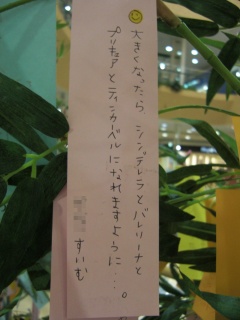 大きくなったら、シンデレラとバレリーナと
プリキュアとティンカーベルになれますように…。
すいむ